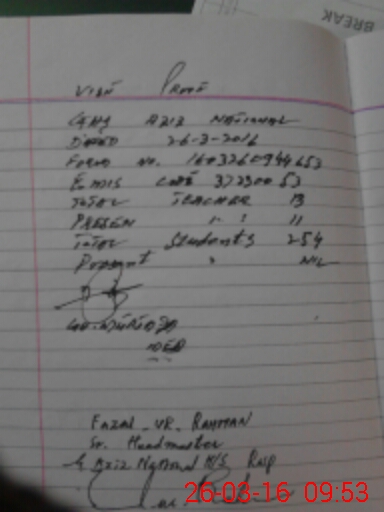 BREAK
VISIT PROOF
G.H/S AZIZ NATIONAL
DATED 26-3-2016
FORM NO. 160326094
EMIS CODE 37330053
TOTAL TEACHER 13
PRESENT " : 11
TOTAL Students 254
Present " NIL
Fazal-UR-RAHMAN
Sr. Headmaster
G Aziz National H/S Rwp
26-03-16 09:53